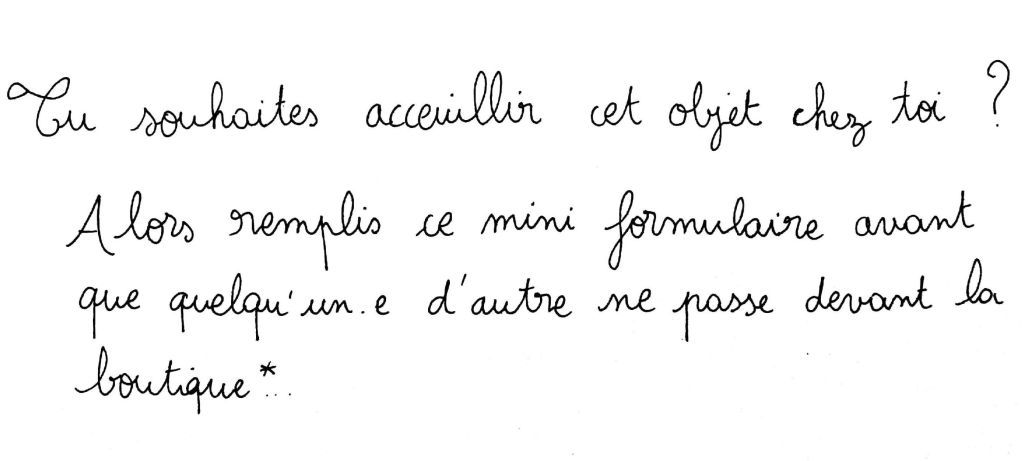 Tu souhaites acceuillir cet objet chez toi ?
Alors remplis ce mini formulaire avant
que quelqu'un.e d'autre ne passe devant la
boutique*...